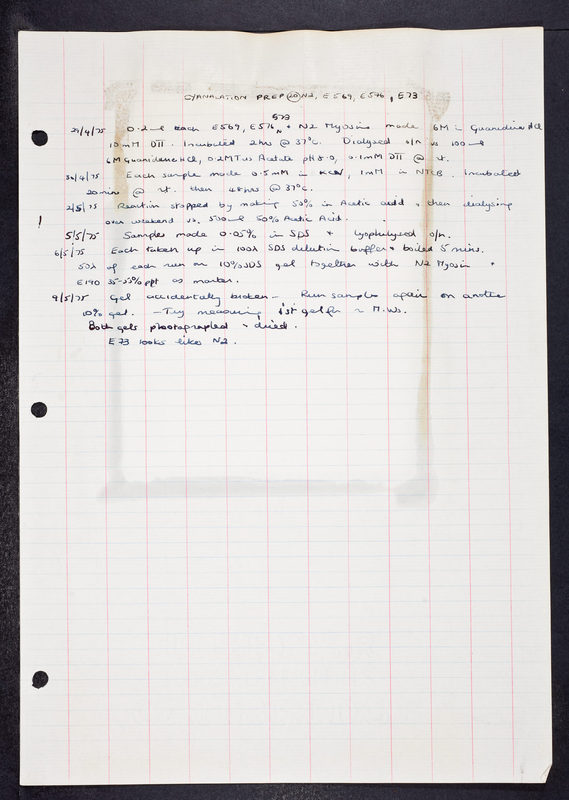 CYANALATION PREP (2) N2, E569, E576, E73
573
29/4/75 0.2ml each E569, E576, + N2 Myosins made 6M in Guanidine HCl
10mM DTT. Incubated 2hrs @ 37°C. Dialysed o/n vs 100ml
6M Guanidine HCl, 0.2M Tris Acetate pH 8.0, 0.1mM DTT @ rt.
30/4/75 Each sample made 0.5mM in KCN, 1mM in NTCB. Incubated
20mins @ rt. then 48hrs @ 37°C.
2/5/75 Reaction stopped by making 50% in Acetic acid + then dialysing
! over weekend vs. 500ml 50% Acetic Acid.
5/5/75 Samples made 0.05% in SDS + lyophilysed o/n.
6/5/75 Each taken up in 100λ SDS dilution buffer + boiled 5 mins.
50λ of each run on 10% SDS gel together with N2 Myosin +
E190 35-55% ppt as marker.
9/5/75 Gel accidentally broken - Run samples again on another
10% gel. - Try measuring 1st gel for ~ M.Ws.
Both gels photographed + dried.
E73 looks like N2.